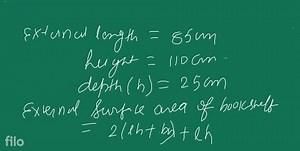 External length = 85cm
height = 110cm.
depth(b) = 25cm
External surface area of bookshelf
= 2(lh + b) + lh
filo